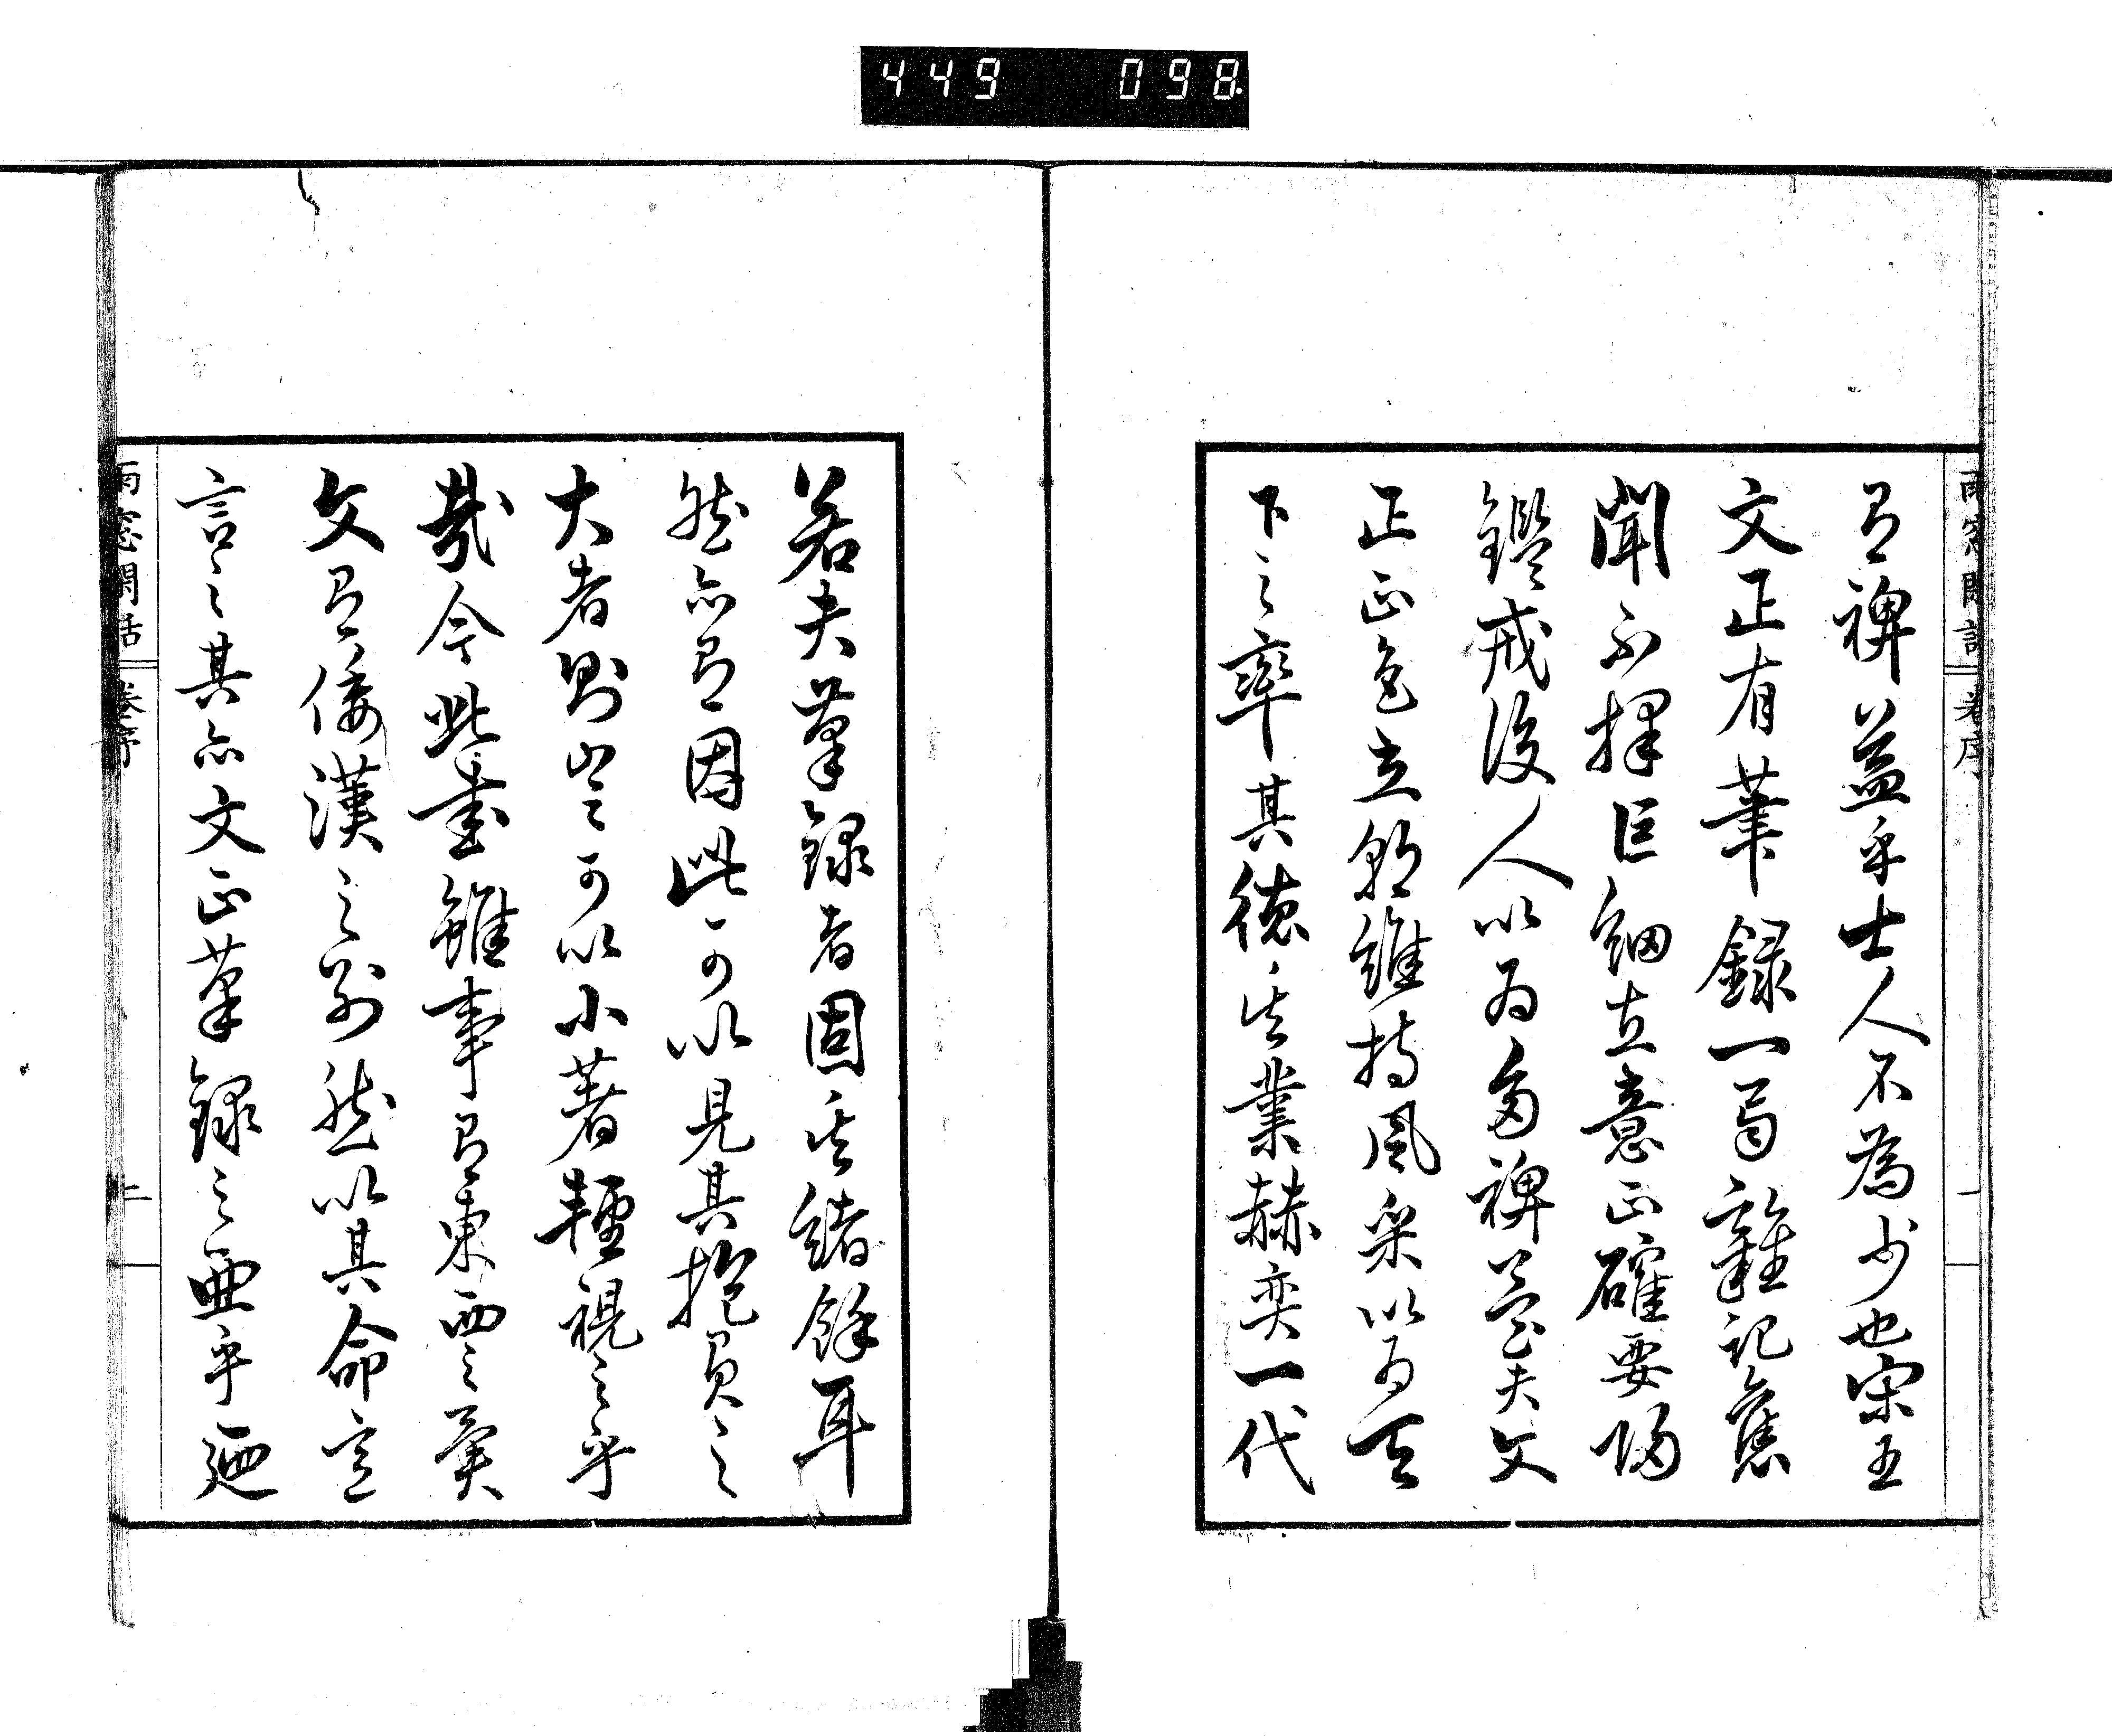 449 098
雨窓閒話 卷序 一
有裨益乎士人不為少也宋王
文正有筆錄一局雜記舊
聞不擇巨細立意正確要歸
鑑戒後人以為多裨益夫文
正正色立朝維持風采以為天
下之率其德其業赫奕一代
若夫筆錄者固其緒餘耳
然亦有因此可以見其抱負之
大者則豈可以小著輕視之乎
哉今此書雖事有東西之異
文有倭漢之別然以其命意
言之其亦文正筆錄之亞乎廼
雨窓閒話 卷序 二